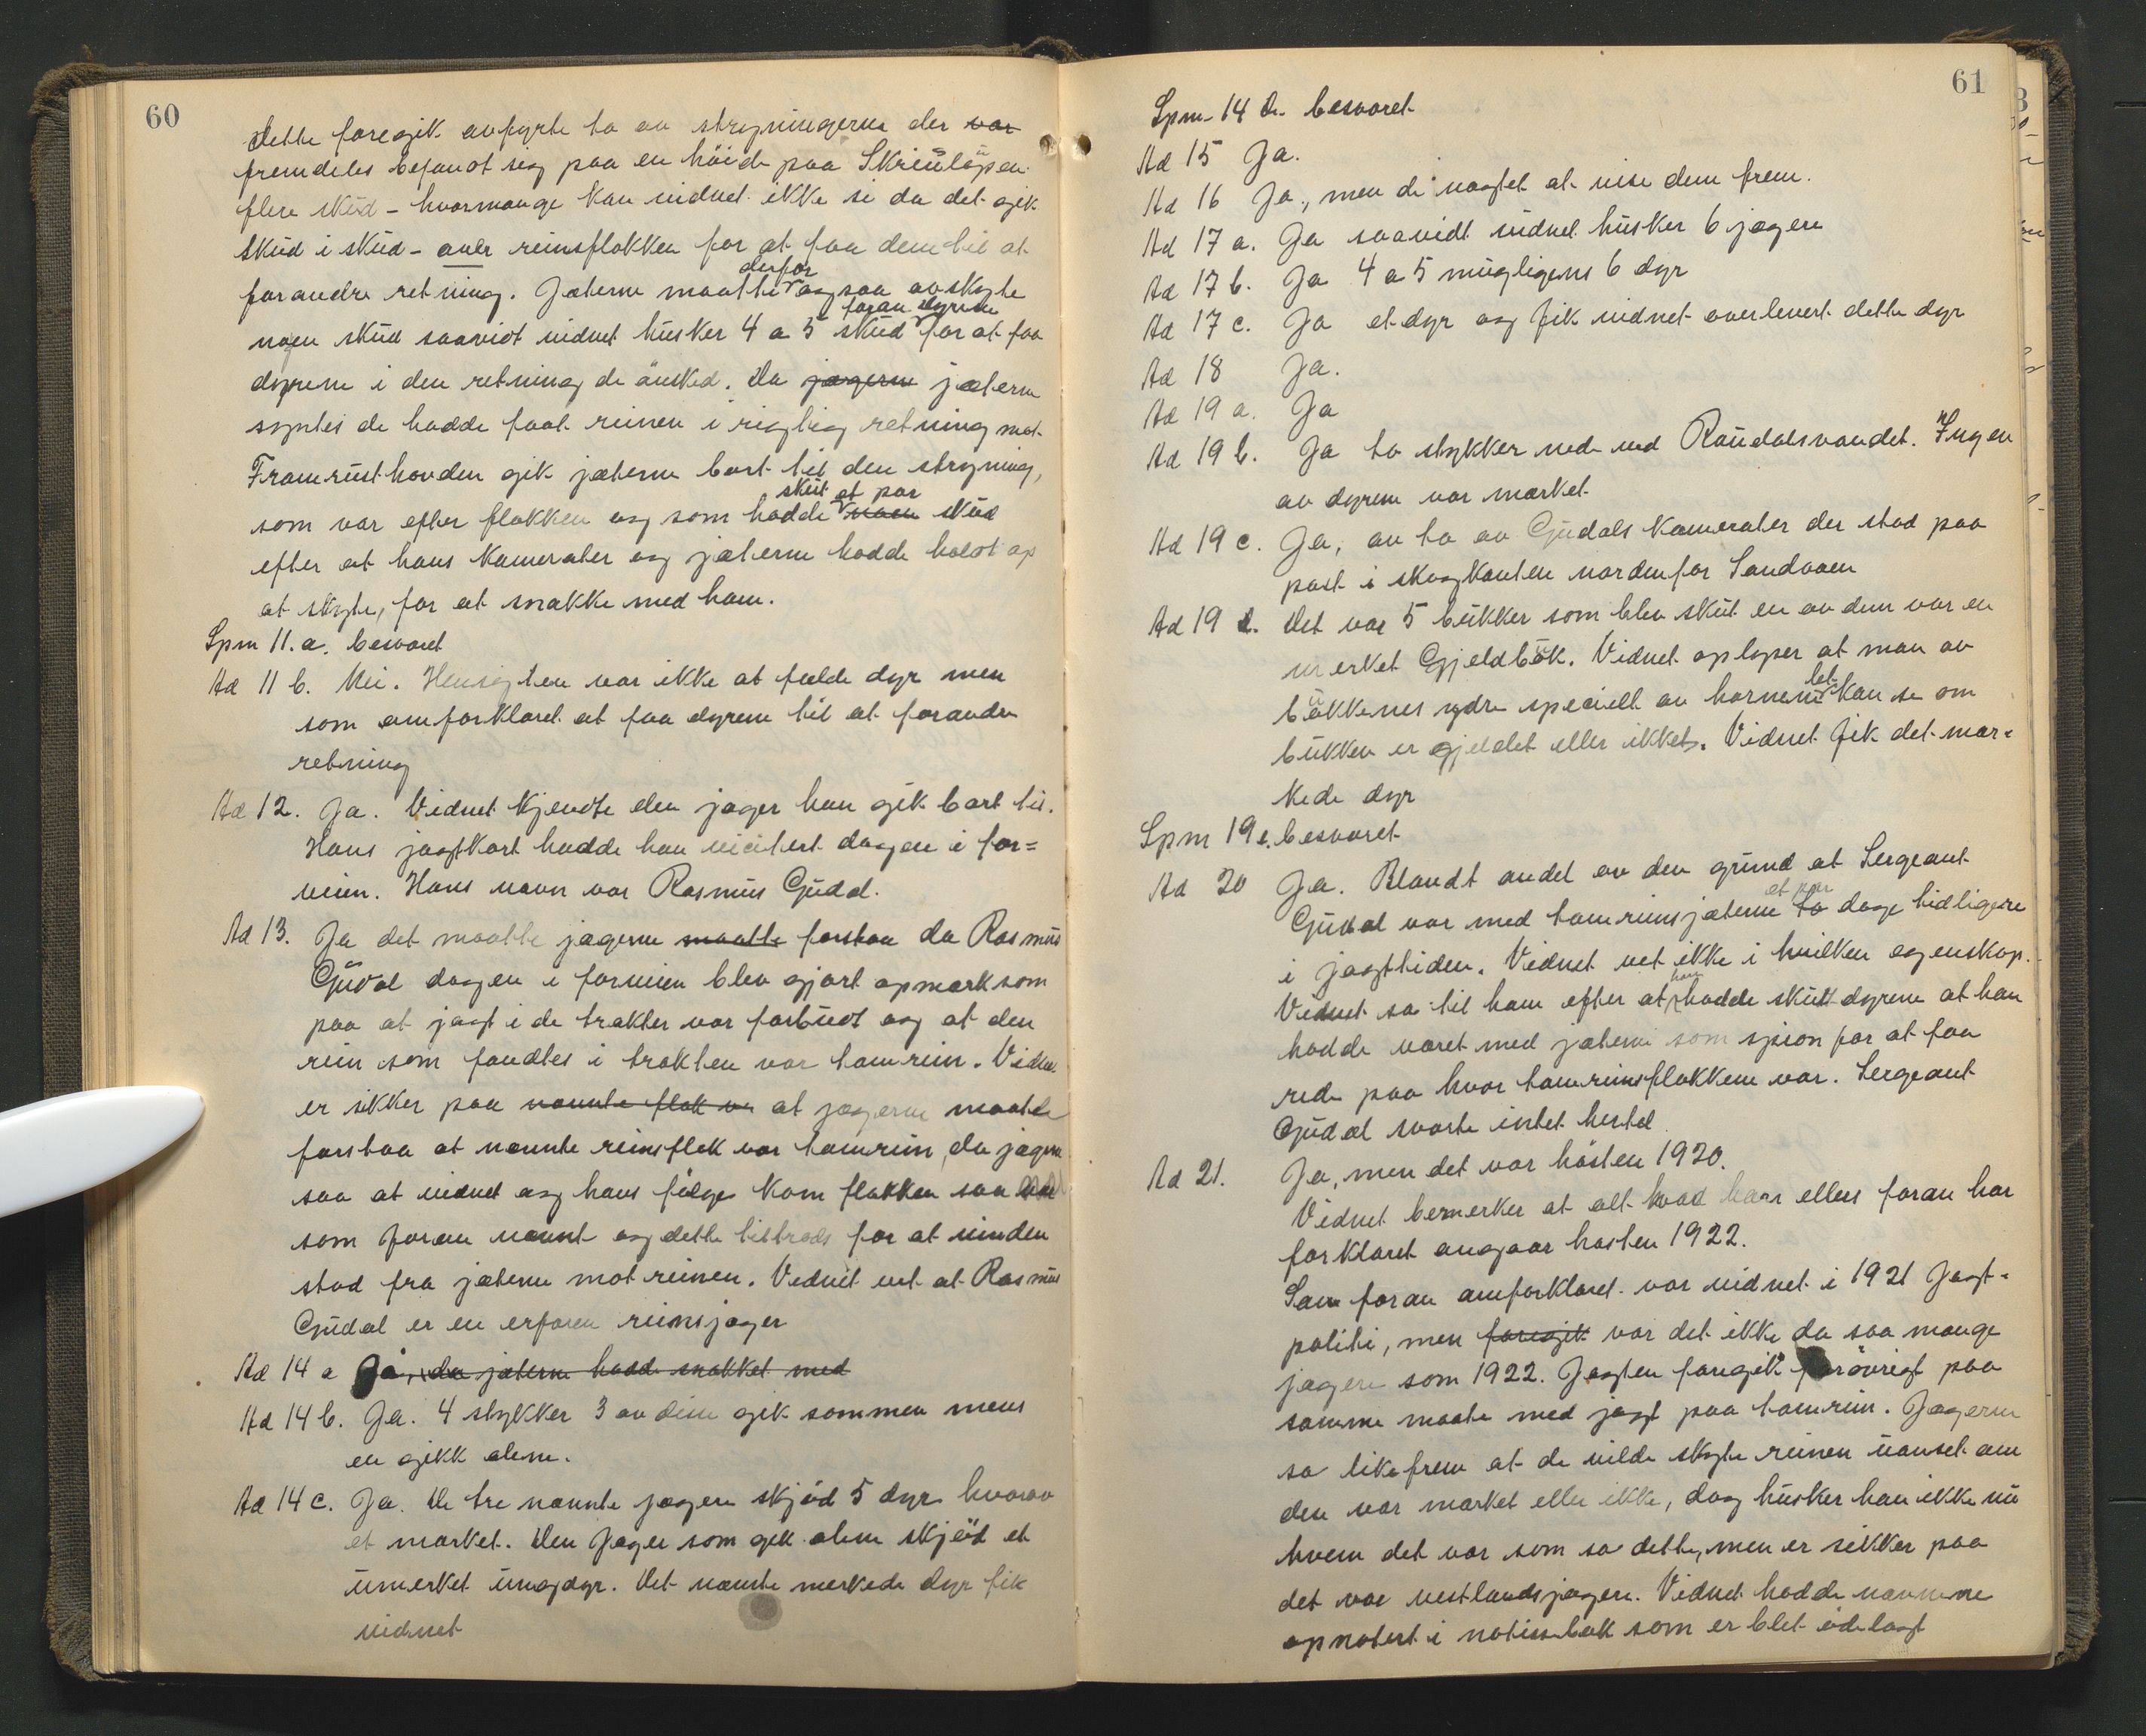 60
Dette foregik avfyrte to av strypningerne der var
fremdeles befandt sig paa en höide paa Skriulöpen
flere skud - hvormange kan vidnet ikke si da det gik
skud i skud - over reinsflokken for at faa dem til at
forandre retning. Jæterne maatte derfor ogsaa avskyte
nogen skud saavidt vidnet husker 4 a 5 skud foran dyrene for at faa
dyrene i den retning de önsked. Da jagerne jæterne
syntes de hadde faat reinen i rigtig retning mot
Framrusthovden gik jæterne bort til den stryning,
som var efter flokken og som hadde skut et par noen skud
efter at hans kamerater og jæterne hadde holdt op
at skyte, for at snakke med ham.
Spm 11.a. besvaret
Ad 11 b. Nei. Hensigten var ikke at fælde dyr men
som omforklaret at faa dyrene til at forandre
retning
Ad 12. Ja. Vidnet kjendte den jager han gik bort til.
Hans jagtkort hadde han visitert dagen i for=
veien. Hans navn var Rasmus Gudal.
Ad 13. Ja det maatte jagerne maatte forstaa da Rasmus
Gudal dagen i forveien blev gjort opmerksom
paa at jagt i de trakter var forbudt og at den
rein som fandtes i trakten var tamrein. Vidnet
er sikker paa nævnte flok var at jagerne maatte
forstaa at nævnte reinsflok var tamrein, da jagerne
saa at vidnet og hans fölge kom flokken saa
som foran nævnt og dette tiltrods for at vinden
stod fra jæterne mot reinen. Vidnet vet at Rasmus
Gudal er en erfaren reinsjager
Ad 14 a Ja, da jæterne hadde snakket med
Ad 14 b. Ja. 4 stykker 3 av disse gik sammen mens
en gikk alene.
Ad 14 c. Ja. De tre nævnte jagere skjöd 5 dyr hvorav
et market. Den Jager som gik alene skjöd et
umerket ungdyr. Det nævnte merkede dyr fik
vidnet
61
Spm. 14 d. besvaret
Ad 15 Ja.
Ad 16 Ja, men de nagtet at vise dem frem.
Ad 17 a. Ja saavidt vidnet husker 6 jagere
Ad 17 b. Ja 4 a 5 muligens 6 dyr
Ad 17 c. Ja et dyr og fik vidnet overlevert dette dyr
Ad 18 Ja.
Ad 19 a. Ja
Ad 19 b. Ja to stykker nede ved Raudalsvandet. Ingen
av dyrene var market.
Ad 19 c. Ja, av to av Gudals kamerater der stod paa
post i skogkanten nordenfor Sandaaen
Ad 19 d. Det var 5 bukker som blev skut en av dem var en
merket Gjeldbuk. Vidnet oplyser at man av
bukkenes ydre specielt av hornene let kan se om
bukken er gjeldet eller ikke. Vidnet fik det mær=
kede dyr
Spm 19 e. besvaret
Ad 20 Ja. Blandt andet av den grund at Sergeant
Gudal var med tamreinsjæterne et par to dage tidligere
i jagttiden. Vidnet vet ikke i hvilken egenskap.
Vidnet sa til ham efter at han hadde skutt dyrene at han
hadde været med jæterne som spion for at faa
rede paa hvor tamreinsflokkene var. Sergeant
Gudal svarte intet hertil
Ad 21. Ja, men det var hösten 1920.
Vidnet bemerker at alt hvad han ellers foran har
forklaret angaar hösten 1922.
Som foran omforklaret var vidnet i 1921 Jagt-
politi, men foregik var det ikke da saa mange
jagere som 1922. Jagten foregik forövrigt paa
samme maate med jagt paa tamrein. Jagerne
sa likefrem at de vilde skyte reinen uanset om
den var market eller ikke, dog husker han ikke nu
hvem det var som sa dette, men er sikker paa
det var vestlandsjagere. Vidnet hadde navnene
opnotert i notisbok som er blet ödelagt